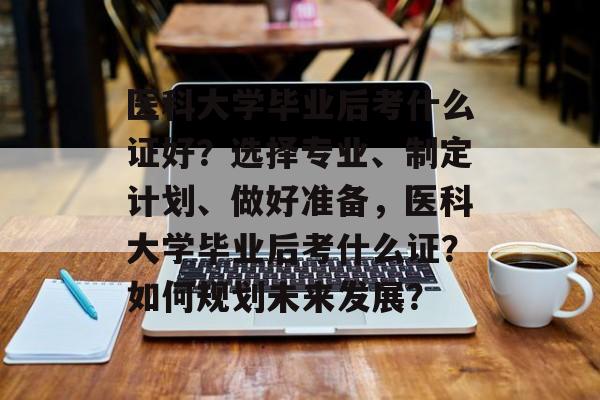 医科大学毕业后考什么
证好？选择专业、制定
计划、做好准备，医科
大学毕业后考什么证？
如何规划未来发展？